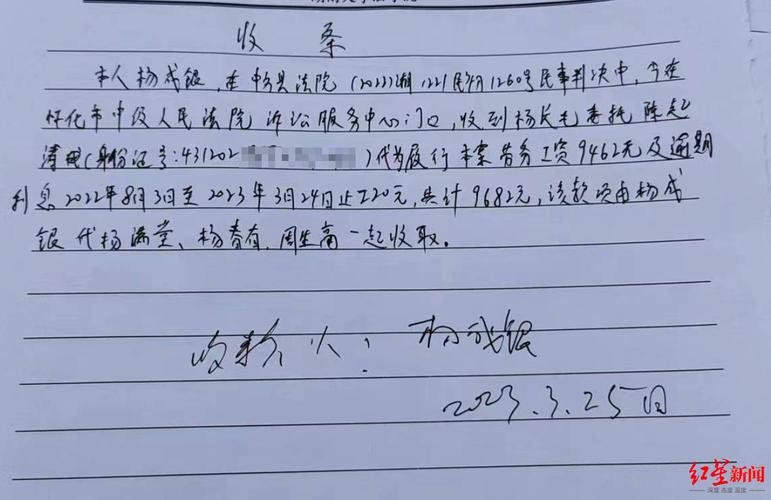 收条
本人杨成银,在中方县法院(2022)湘1221民初1260号民事判决中,今在
怀化市中级人民法院诉讼服务中心门口,收到杨长毛委托陈起
清(身份证号:431202)代为履行本案劳务工资9462元及逾期
利息2022年8月3日至2023年3月24日止220元,共计9682元,该款项由杨成
银代杨满堂、杨春有、周生高一起收取。
收款人:杨成银
2023.3.25日
红星新闻
深度 态度 温度